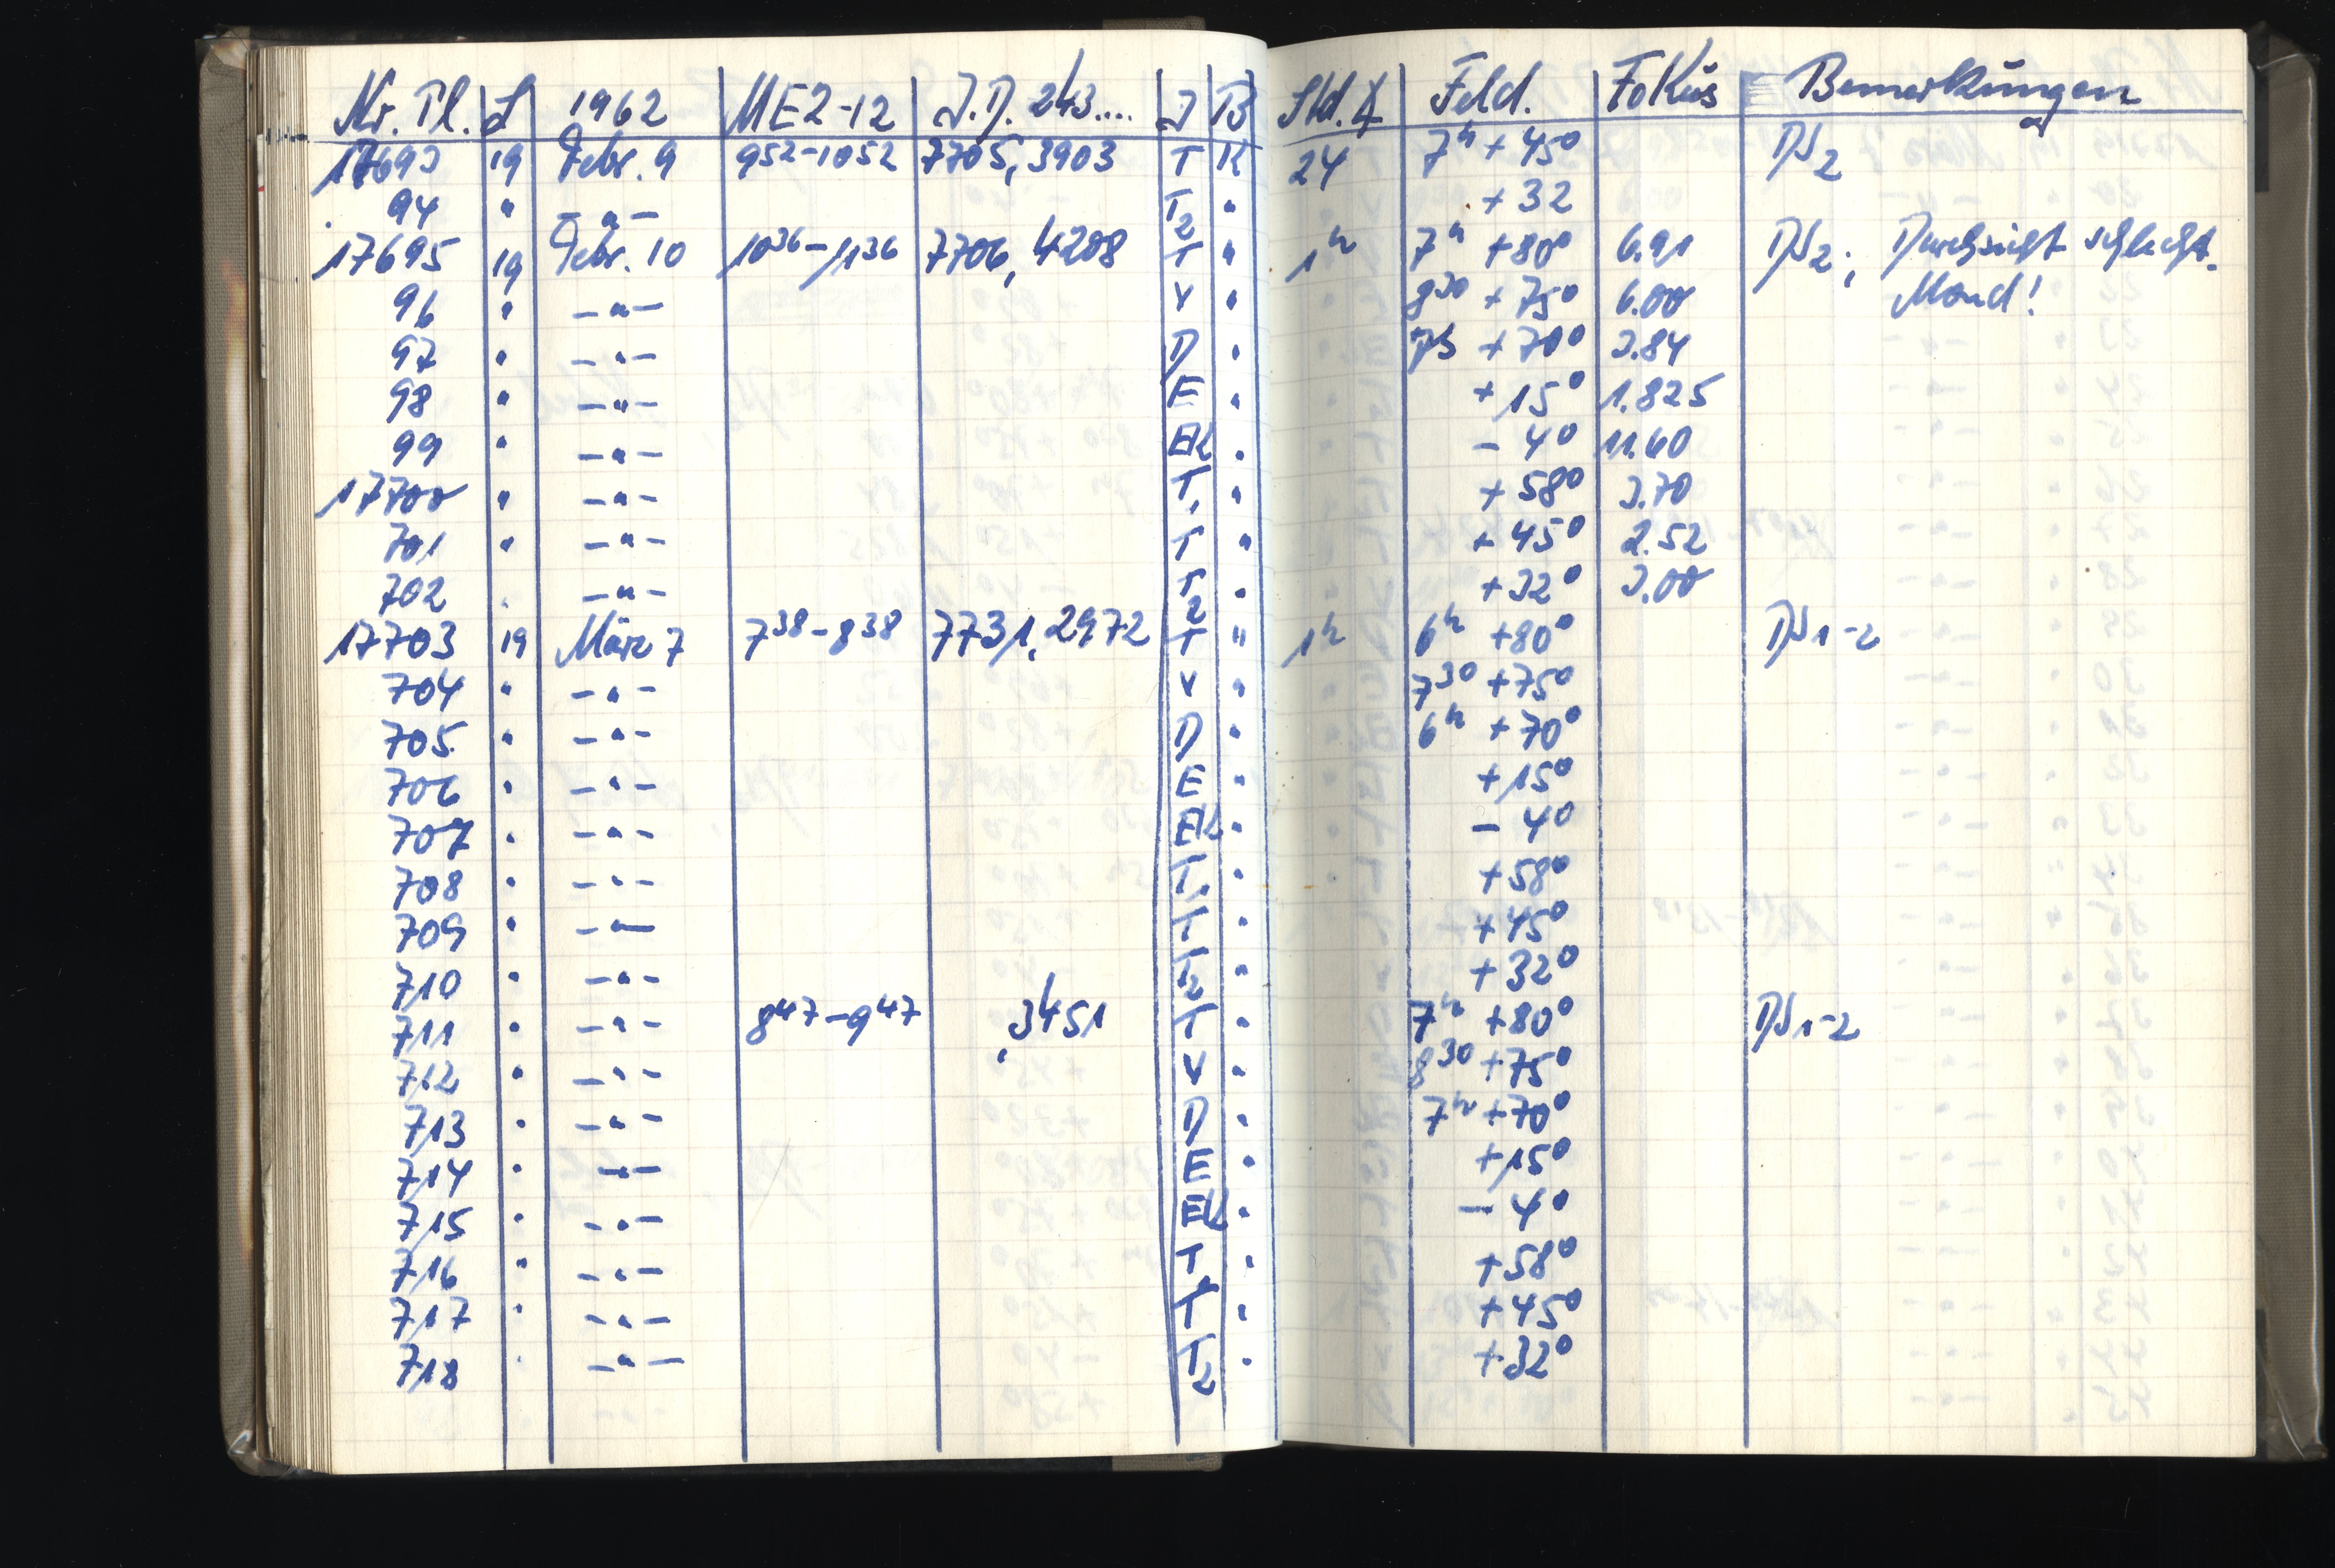 Nr. Pl. L 1962 MEZ-12 J.D. 243.... J B Std.∡ Feld. Fokus Bemerkungen
17693 19 Febr. 9 9⁵²-10⁵² 7705,3903 T K 24 7ʰ +45⁰ DS 2
94 " -"- T₂ " +32
17695 19 Febr. 10 10³⁶-11³⁶ 7706,4208 T " 1ʰ 7ʰ +80⁰ 6.91 DS 2; Durchsicht schlecht.
96 " -"- V " 8³⁰ +75⁰ 6.00 Mond!
97 " -"- D " +70⁰ 3.84
98 " -"- E " +15⁰ 1.825
99 " -"- " - 4⁰ 11.60
17700 " -"- T₁ " +58⁰ 3.70
701 " -"- T " +45⁰ 2.52
702 " -"- T₂ " +32⁰ 3.00
17703 19 März 7 7³⁸-8³⁸ 7731,2972 T " 1ʰ 6ʰ +80⁰ DS 1-2
704 " -"- V " 7³⁰ +75⁰
705 " -"- D " 6ʰ +70⁰
706 " -"- E " +15⁰
707 " -"- " - 4⁰
708 " -"- T₁ " +58⁰
709 " -"- T " +45⁰
710 " -"- T₂ " +32⁰
711 " -"- 8⁴⁷-9⁴⁷ ,3451 T " 7ʰ +80⁰ DS 1-2
712 " -"- V " 8³⁰ +75⁰
713 " -"- D " 7ʰ +70⁰
714 " -"- E " +15⁰
715 " -"- " - 4⁰
716 " -"- T₁ " +58⁰
717 " -"- T " +45⁰
718 " -"- T₂ " +32⁰